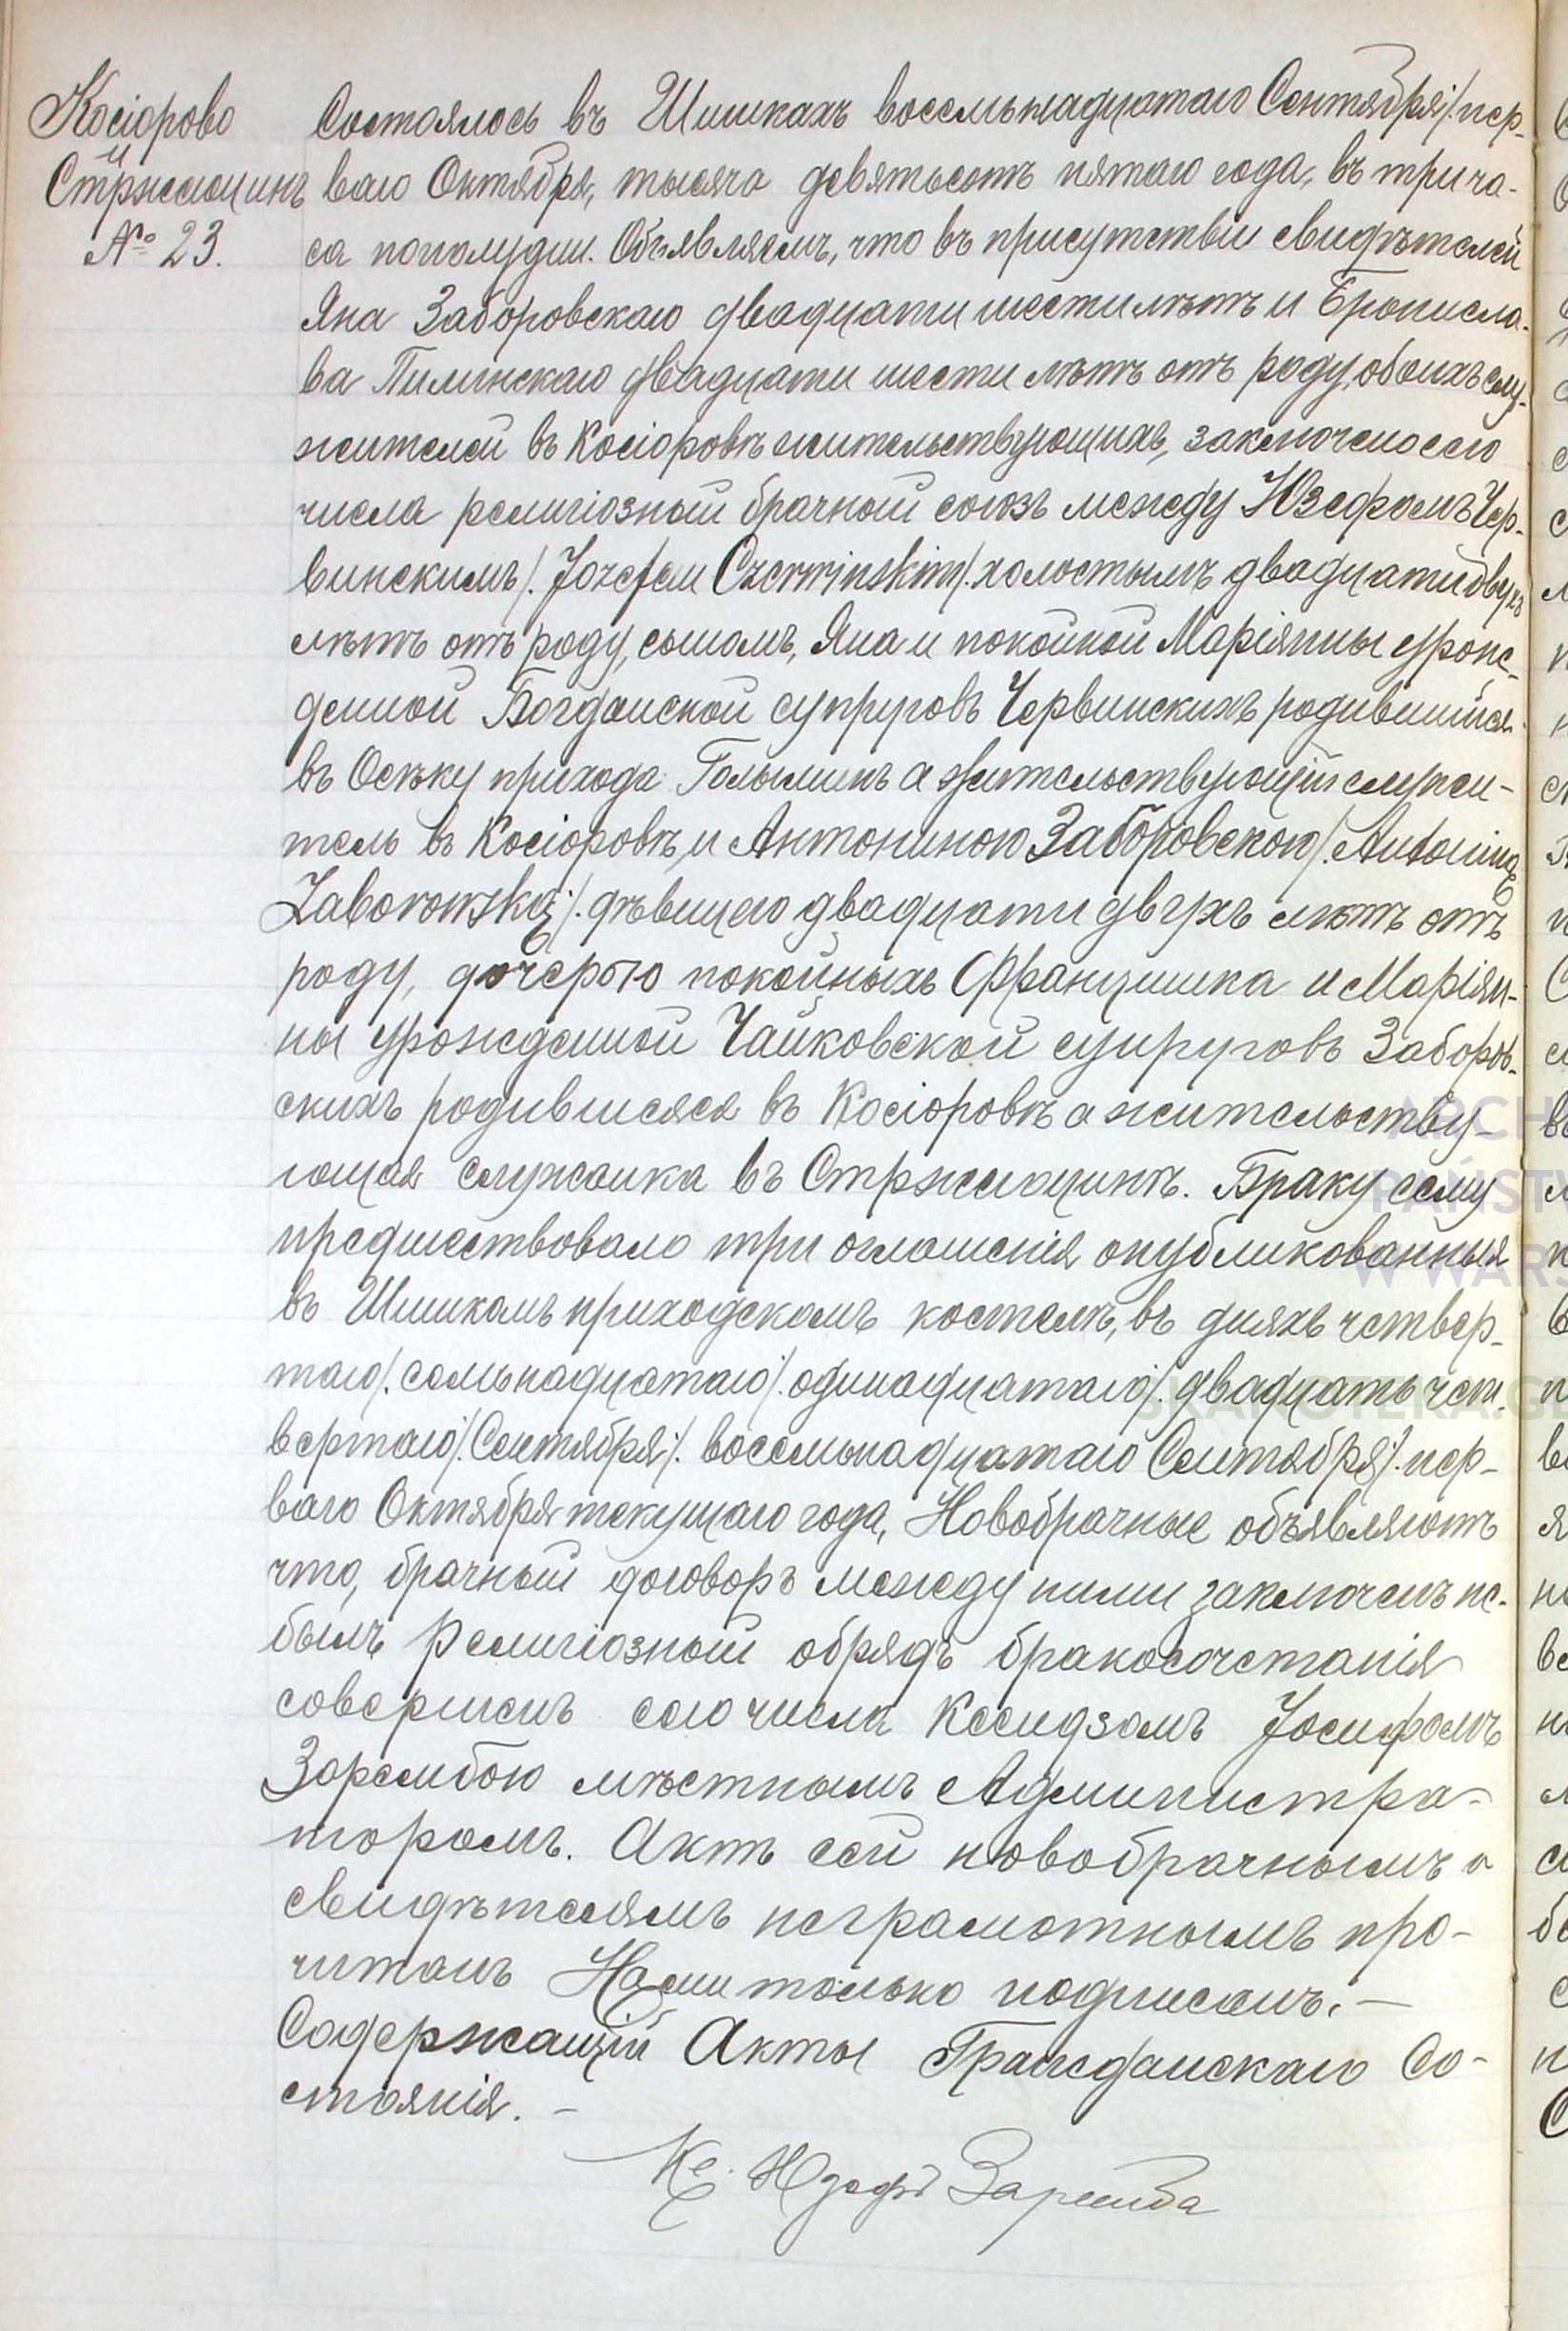 Косіорово
и
Стржешчинъ
№ 23.
Состоялось въ Шишкахъ восемьнадцатаго Сентября /. пер-
ваго Октября, тысяча девятьсотъ пятаго года, въ три ча-
са пополудни. Объявляемъ, что въ присутствіи свидѣтелей
Яна Заборовскаго двадцати шести лѣтъ и Брописла-
ва Пилинскаго двадцати шести лѣтъ отъ роду, обоихъ слу-
жителей въ Косіоровѣ жительствующихъ, заключено сего
числа религіозный брачный союзъ между Юзефомъ Чер-
винскимъ /. Jozefem Czerwinskim /. холостымъ двадцати двухъ
лѣтъ отъ роду, сыномъ, Яна и покойной Маріянны урож-
денной Богданской супруговъ Червинскихъ родившійся
въ Осѣку прихода Голыминъ а жительствующій служи-
тель въ Косіоровѣ, и Антониною Заборовскою /. Antoniną
Zaborowską /. дѣвицею двадцати двухъ лѣтъ отъ
роду, дочерью покойныхъ Францишка и Маріян-
ны урожденной Чайковской супруговъ Заборов-
скихъ родившаяся въ Косіоровѣ а жительству-
ющая служанка въ Стржешчинѣ. Браку сему
предшествовало три оглашенія опубликованныя
въ Шишкомъ приходскомъ костелѣ, въ дняхъ четвер-
таго /. семьнадцатаго /. одинадцатаго /. двадцать чет-
вертаго /. Сентября /. восемьнадцатаго Сентября /. пер-
ваго Октября текущаго года, Новобрачные объявляютъ
что, брачный договоръ между ними заключенъ не-
былъ Религіозный обрядъ бракосочетанія
совершенъ сего числа Ксендзомъ Іосифомъ
Зарембою мѣстнымъ Администра-
торомъ. Актъ сей новобрачнымъ и
свидѣтелямъ неграмотнымъ про-
читанъ Нами только подписанъ. —
Содержащій Акты Гражданскаго Со-
стоянія. —
Кс. Юзефъ Заремба
ARCH
PAŃSTW
W WARS
SKANOTEKA.GE